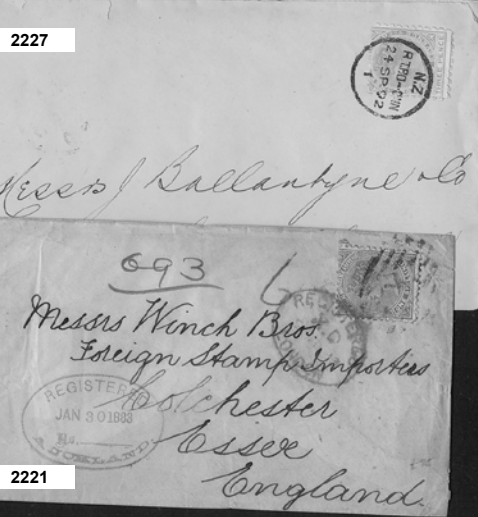 2227
THREE PENCE
N.Z
RTPO-C'N
24 SP 92
1
Messrs J Ballantyne & Co
693
REGISTERED
LONDON
Messrs Winch Bros.
Foreign Stamp Importers
Colchester
Essex
England.
REGISTERED
JAN 30 1883
No.
AUCKLAND
2221